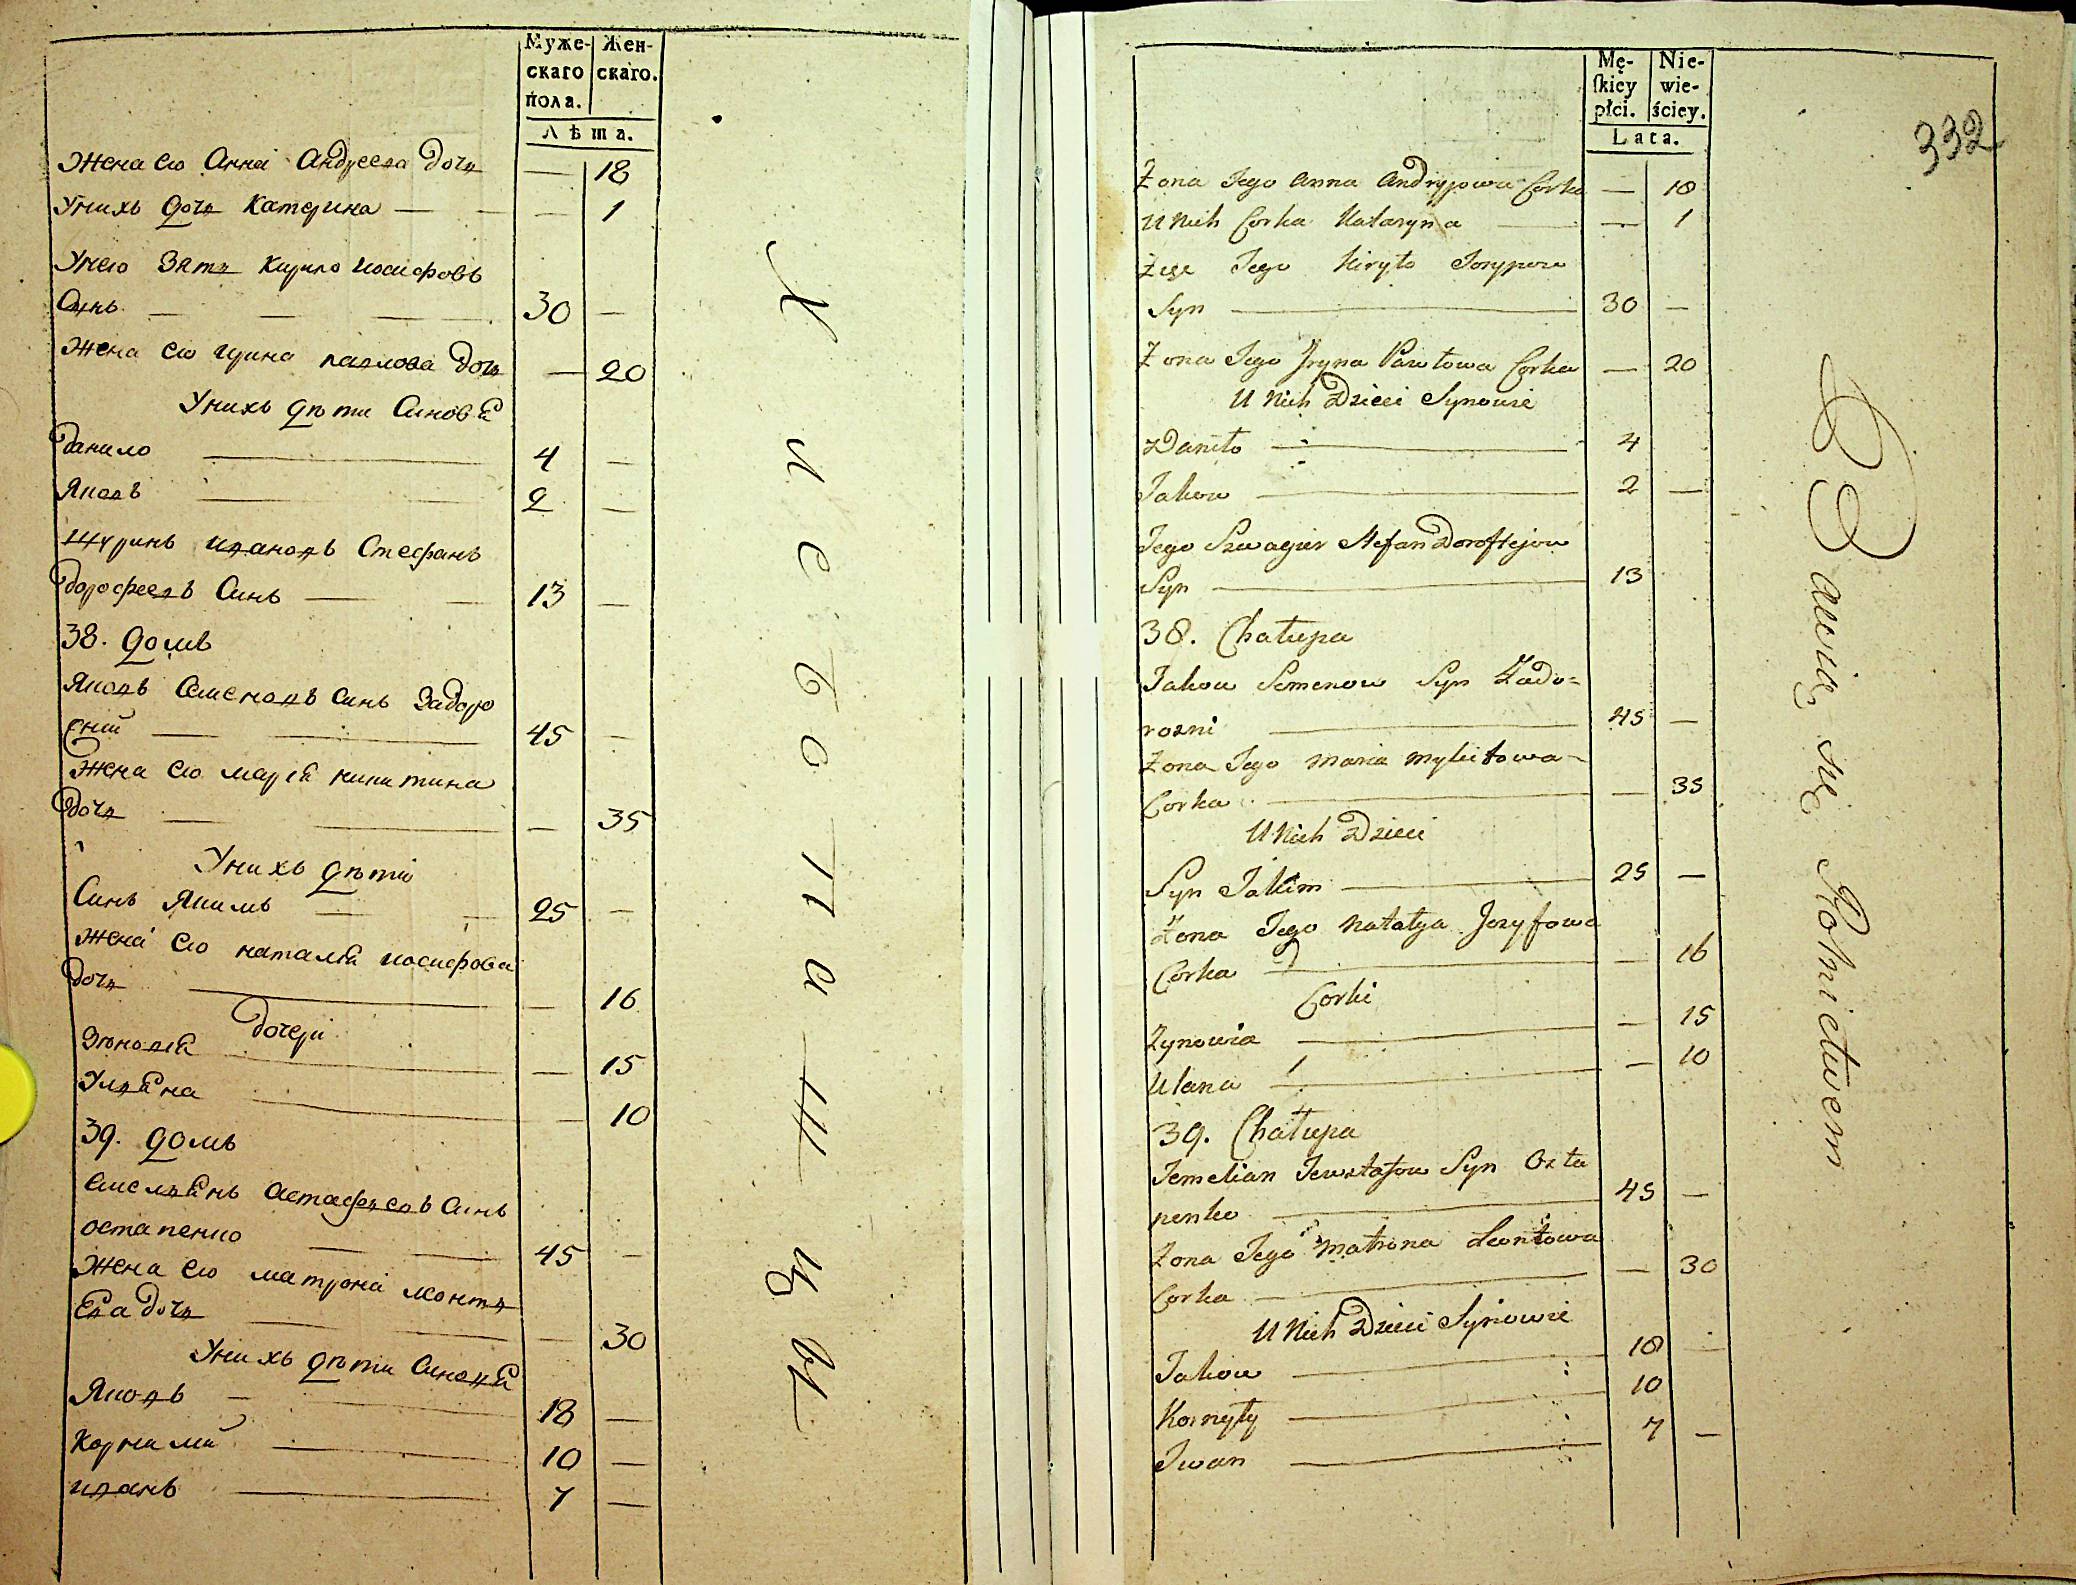 Муже-
скаго
пола.
Жен-
скаго.
Лѣта.
Жена его Анна Андреева дочь — 18
У нихъ дочь Катерина — — 1
У него Зять Кирило иосифовъ
Синь — — — 30 —
Жена его ирина павлова дочь — 20
У нихъ дѣти Синовѣ
данило — 4 —
Яковъ — 2 —
Шуринъ ивановъ Стефанъ
дорофеевъ Синь — — 13 —
38. домъ
Яковъ Семеновъ Синь Задоро
жній — — 45 —
Жена его марія никитина
дочь — — — 35
У нихъ дѣти
Синь Якимъ — — 25 —
Жена его наталія иосифова
дочь — — 16
дочери
Зѣновія — — 15
Улияна — — 10
39. домъ
Емельянъ Астафьевъ Синь
остапенко — — 45 —
Жена его матрона леонть
Ева дочь — — — 30
У нихъ дѣти Синовя
Яковъ — 18 —
Корнилий — 10 —
иванъ — 7 —
Х л е б о п а ш ц ы
Mę-
skiey
płci.
Nie-
wie-
ściey.
Lata.
332
Żona Jego Anna Andryjowa Corka — 18
U Nich Corka Kataryna — — 1
Zięć Jego Kiryło Jozypow
Syn — 30 —
Żona Jego Jryna Pawłowa Corka — 20
U Nich Dzieci Synowie
Daniło — 4
Jakow — 2 —
Jego Szwagier Stefan Doroftejow
Syn — 13
38. Chałupa
Jakow Semenow Syn Zado=
rozni — 45 —
Żona Jego Maria Mykitowa
Corka — — 35
U Nich Dzieci
Syn Jakim — 25 —
Żona Jego Natalya Jozyfowa
Corka — — 16
Corki
Zynowia — — 15
Ulana — — 10
39. Chałupa
Jemelian Jewstafow Syn Osta
penko — 45 —
Żona Jego Matrona Leontowa
Corka — — 30
U Nich Dzieci Synowie
Jakow — 18 —
Kornyły — 10
Jwan — 7 —
Bawią się Rolnictwem